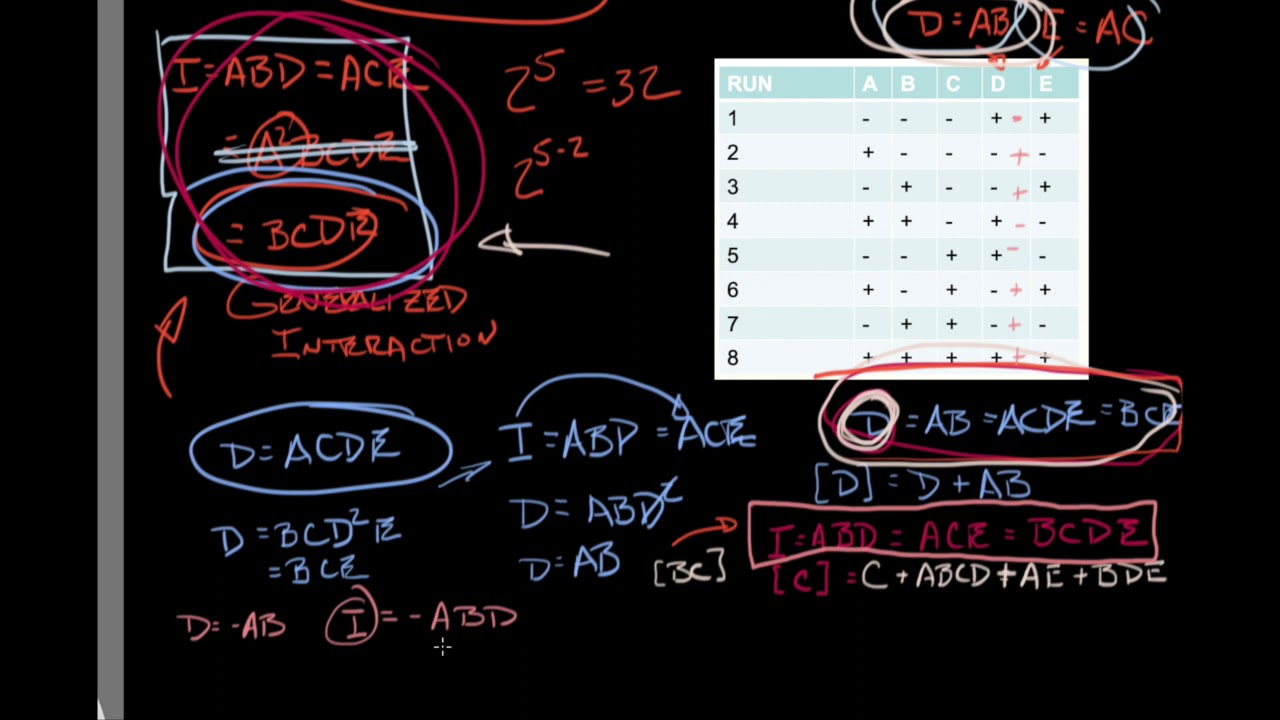 D = AB E = AC
I = ABD = ACE
= A²BCDE
= BCDE
GENERALIZED
INTERACTION
2⁵ = 32
2⁵⁻²
RUN A B C D E
1 - - - + - +
2 + - - - + -
3 - + - - + +
4 + + - + - -
5 - - + + - -
6 + - + - + +
7 - + + - + -
8 + + + + + +
D = ACDE
D = BCD²E
= BCE
I = ABD = ACE
D = ABD²
D = AB
D = AB = ACDE = BCE
[D] = D + AB
I = ABD = ACE = BCDE
[BC]
[C] = C + ABCD + AE + BDE
D = -AB I = - ABD